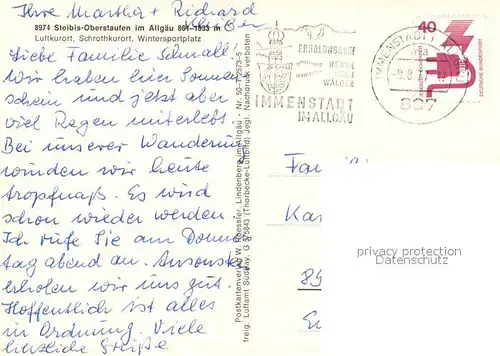 Ihre Martha + Richard
8974 Steibis-Oberstaufen im Allgäu 861-1833 m
Luftkurort, Schrothkurort, Wintersportplatz
Liebe Familie Schmall!
Wir haben hier Sonnen
schein und jetzt aber
viel Regen miterlebt.
Bei unserer Wanderung
wurden wir heute
tropfnaß. Es wird
schon wieder werden.
Ich rufe Sie am Donners
tag abend an. Ansonsten
erholen wir uns gut.
Hoffentlich ist alles
in Ordnung. Viele
herzliche Grüße
Postkartenverlag W. Roessler, Lindenberg im Allgäu - Nr. 50-11-2973-5
freig. Luftamt Südbay. G 5/5843 (Thorbecke-Luftbild) Jegl. Nachdruck verboten
ERHOLUNGSORT
BERGE
SEEN
WÄLDER
IMMENSTADT
IM ALLGÄU
IMMENSTADT
897
40
DEUTSCHE BUNDESPOST
Fa
Ka
89
privacy protection
www.oldthing.com